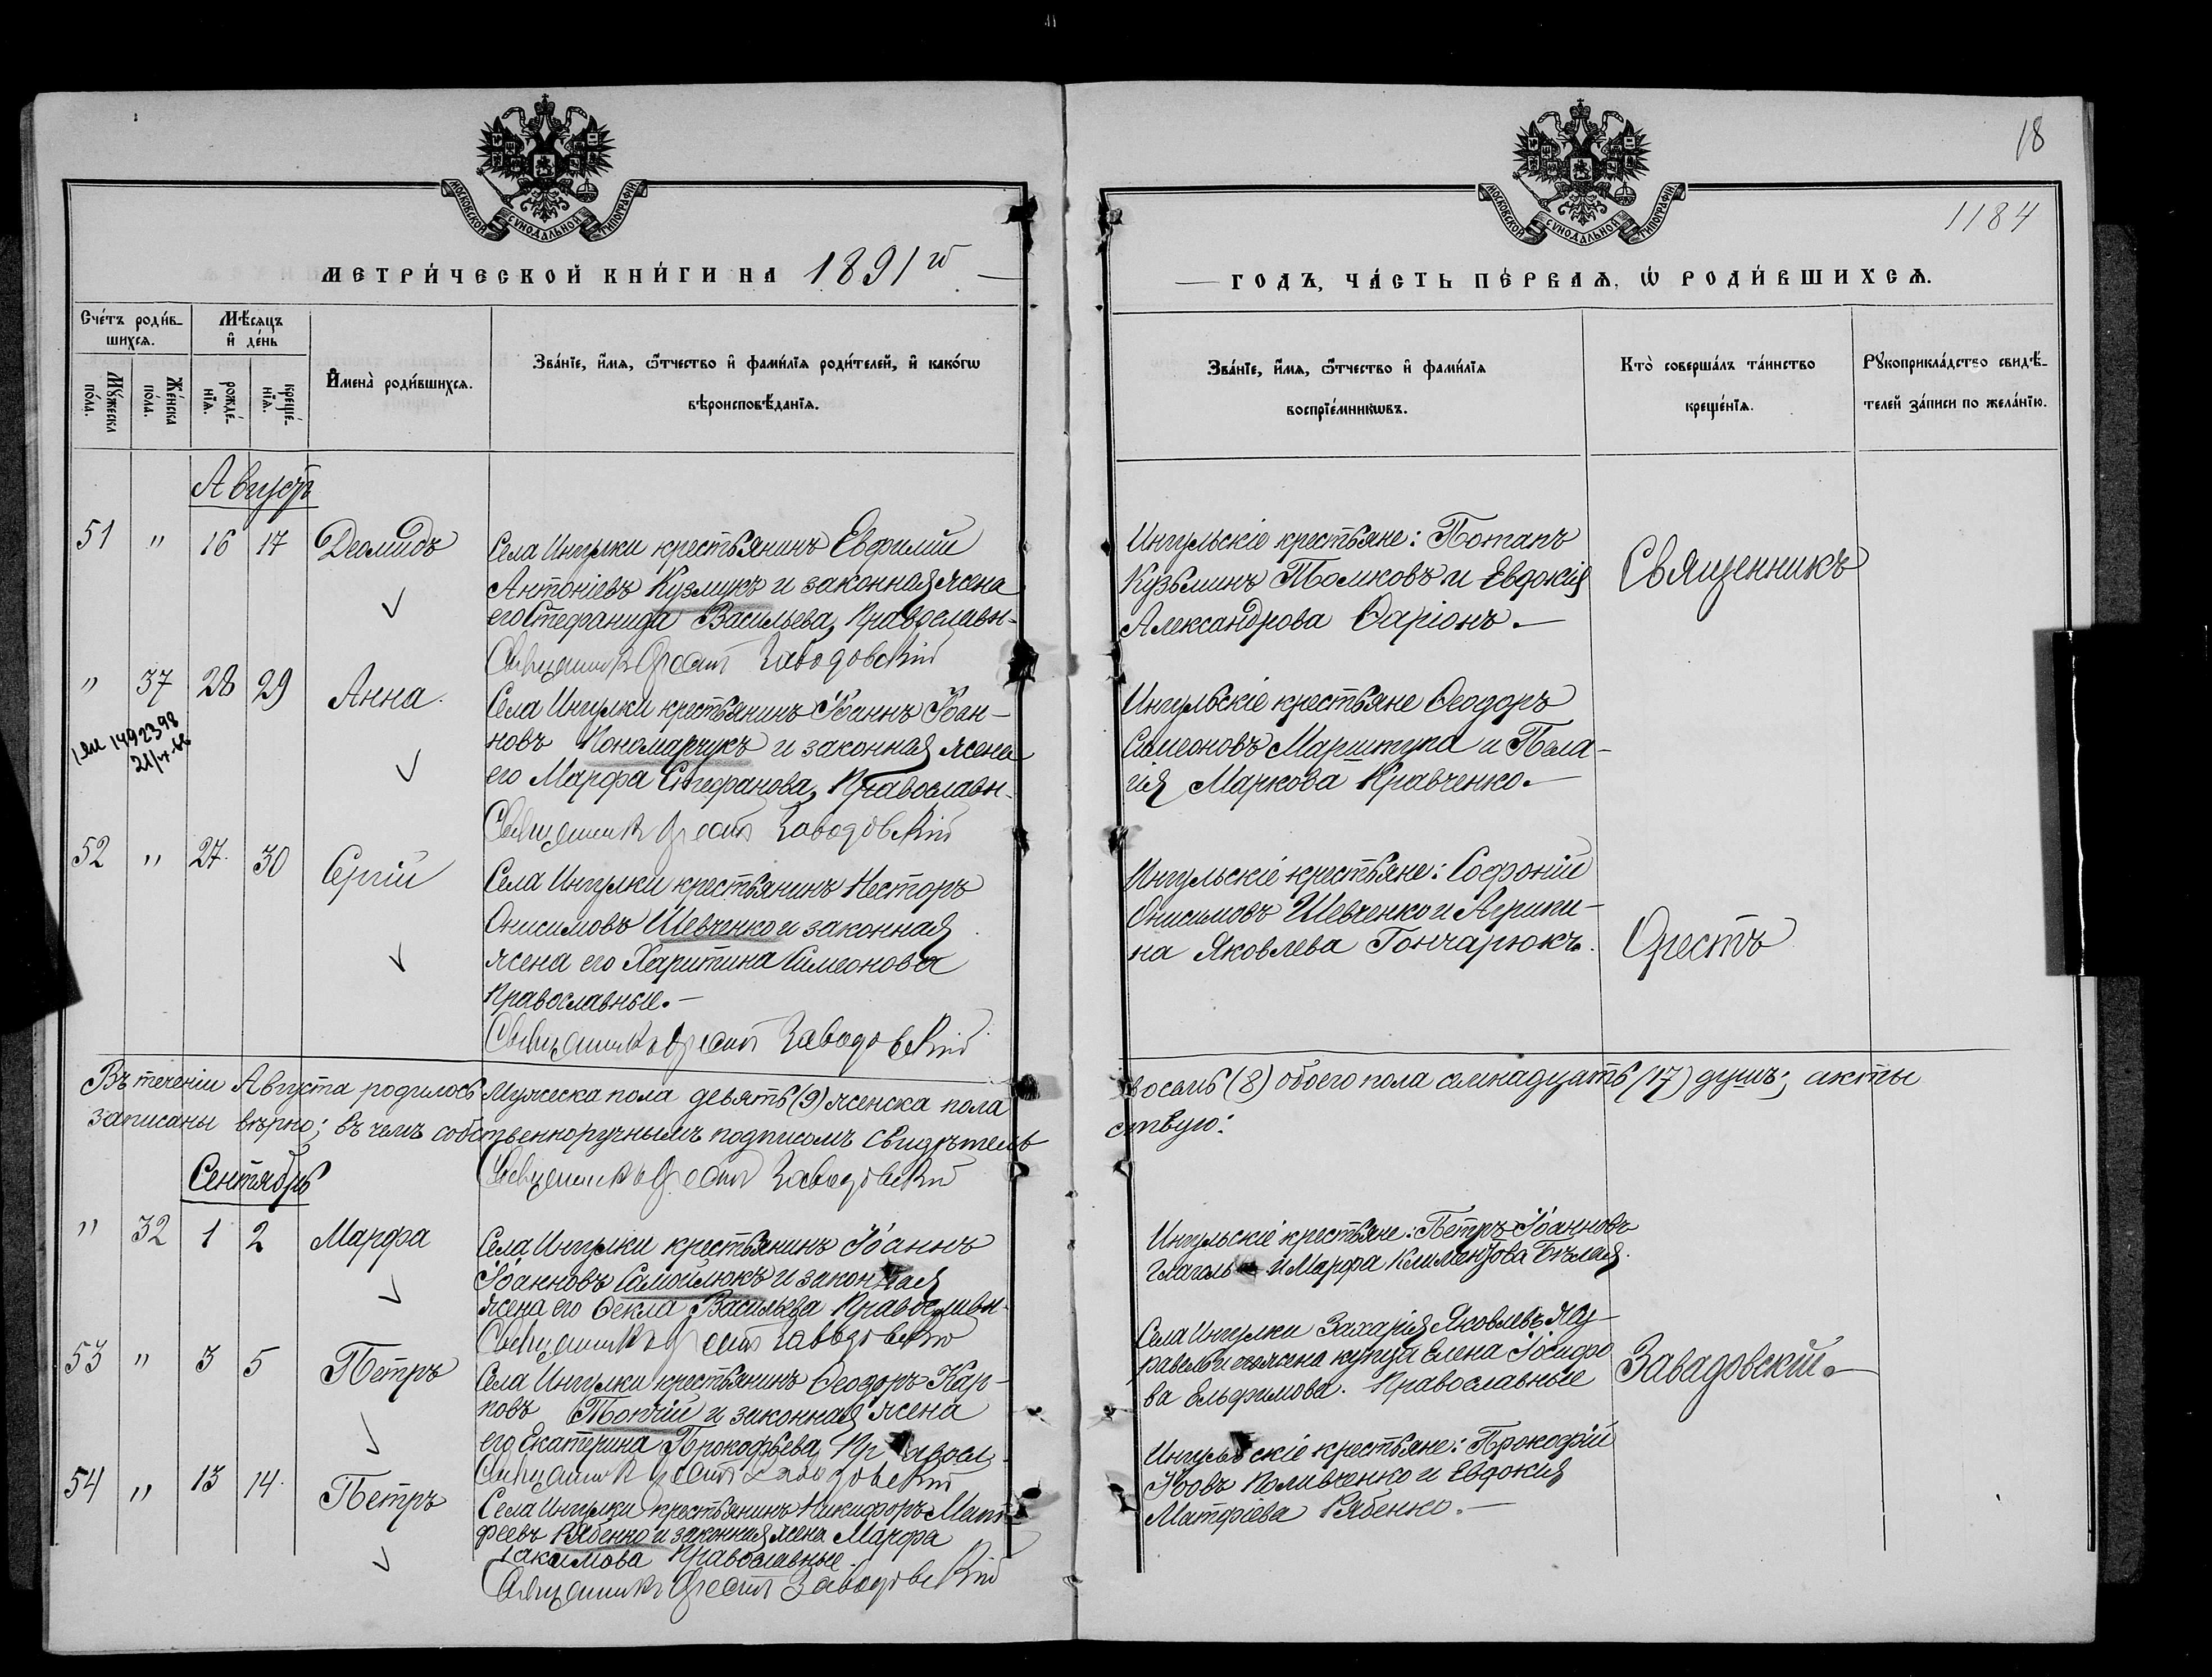 18
1184
МОСКОВСКОЙ СѴНОДАЛЬНОЙ ТИПОГРАФІИ
МОСКОВСКОЙ СѴНОДАЛЬНОЙ ТИПОГРАФІИ
МЕТРИ́ЧЕСКОЙ КНИ́ГИ НА 1891 й
ГОДЪ, ЧА́СТЬ ПЕ́РВАѦ, Ѡ РОДИ́ВШИХСѦ.
Сче́тъ роди́в-
шихсѧ.
Мѣ́сѧцъ
и҆ де́нь
Мꙋ́жеска
по́ла.
Же́нска
по́ла.
рожде́-
нїѧ.
креще́-
нїѧ.
И҆мена̀ роди́вшихсѧ.
Зва́нїе, и҆́мѧ, ѻ҆́тчество и҆ фами́лїѧ роди́телей, и҆ како́гѡ
вѣроисповѣ́данїѧ.
Зва́нїе, и҆́мѧ, ѻ҆́тчество и҆ фами́лїѧ
воспрїе́мникѡвъ.
Кто̀ соверша́лъ та́инство
креще́нїѧ.
Рꙋкоприкла́дство свидѣ́-
телей за́писи по жела́нїю.
Августъ
51 " 16 17 Деомидъ
Села Ингулки крестьянинъ Евфимій
Антоніевъ Кузмукъ и законная жена
его Стефанида Васильева, Православн-
Священникъ Орестъ Заводовскій
Ингульскіе крестьяне: Потапъ
Кузьминъ Толмковъ и Евдокія
Александрова Фаріонъ.—
Священникъ
" 37 28 29 Анна.
21/IV-66
Села Ингулки крестьянинъ Іоаннъ Іоан-
новъ Пономарчукъ и законная жена
его Марфа Стефанова, Православн-
Священникъ Орестъ Заводовскій
Ингульскіе крестьяне Ѳеодоръ
Симеоновъ Марштупа и Пела-
гія Маркова Кравченко.—
52 " 27. 30 Сергій
Села Ингулки крестьянинъ Несторъ
Онисимовъ Шевченко и законная
жена его Харитина Симеонова
Православные.—
Священникъ Орестъ Заводовскій
Ингульскіе крестьяне: Софроній
Онисимовъ Шевченко и Агрипи-
на Яковлева Гончарюкъ.
Орестъ
Въ теченіи Августа родилось Мужеска пола девять (9) женска пола восемь (8) обоего пола семнадцать (17) душъ; акты
записаны вѣрно; въ чемъ собственноручнымъ подписомъ свидѣтель
ствую:
Священникъ Орестъ Заводовскій
Сентябрь
" 32 1 2 Марфа
Села Ингулки крестьянинъ Іоаннъ
Іоанновъ Самойлюкъ и законная
жена его Ѳекла Васильева Православн-
Священникъ Орестъ Заводовскій
Ингульскіе крестьяне: Петръ Іоанновъ
Глаголь и Марфа Климентова Бѣлая.
53 " 3 5 Петръ
Села Ингулки крестьянинъ Ѳеодоръ Кар-
повъ Топчій и законная жена
его Екатерина Прокофьева, Правосл-
Священникъ Орестъ Заводовскій
Села Ингулки Захарія Яковлевъ Жу-
равель и жена купца Елена Іосифо
ва Ельфимова. Православные
Завадовскій.—
54 " 13 14. Петръ
Села Ингулки крестьянинъ Никифоръ Мат-
феевъ Рябенко и законная жена Марфа
Максимова Православные.
Священникъ Орестъ Заводовскій
Ингульскіе крестьяне: Прокофій
Іовъ Поливченко и Евдокія
Матфіева Рябенко.—